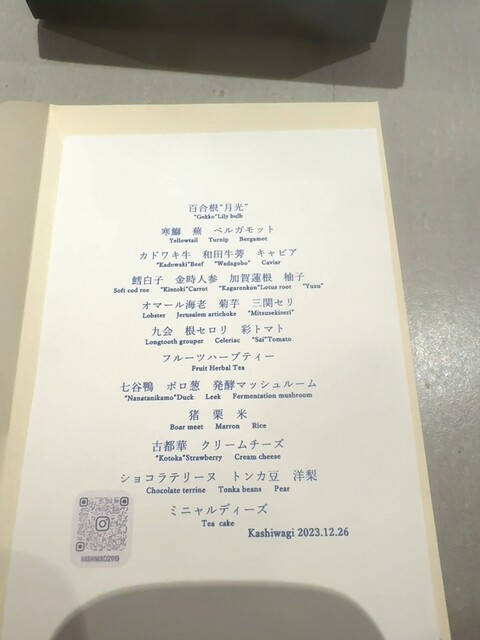 百合根"月光"
"Gekko"Lily bulb
寒鰤 蕪 ベルガモット
Yellowtail Turnip Bergamot
カドワキ牛 和田牛蒡 キャビア
"Kadowaki"Beef "Wadagobo" Caviar
鱈白子 金時人参 加賀蓮根 柚子
Soft cod roe "Kintoki"Carrot "Kagarenkon"Lotus root "Yuzu"
オマール海老 菊芋 三関セリ
Lobster Jerusalem artichoke "Mitsusekiseri"
九会 根セロリ 彩トマト
Longtooth grouper Celeriac "Sai"Tomato
フルーツハーブティー
Fruit Herbal Tea
七谷鴨 ポロ葱 発酵マッシュルーム
"Nanatanikamo"Duck Leek Fermentation mushroom
猪 栗 米
Boar meet Marron Rice
古都華 クリームチーズ
"Kotoka"Strawberry Cream cheese
ショコラテリーヌ トンカ豆 洋梨
Chocolate terrine Tonka beans Pear
ミニャルディーズ
Tea cake
Kashiwagi 2023.12.26
KASHIWAGI2019